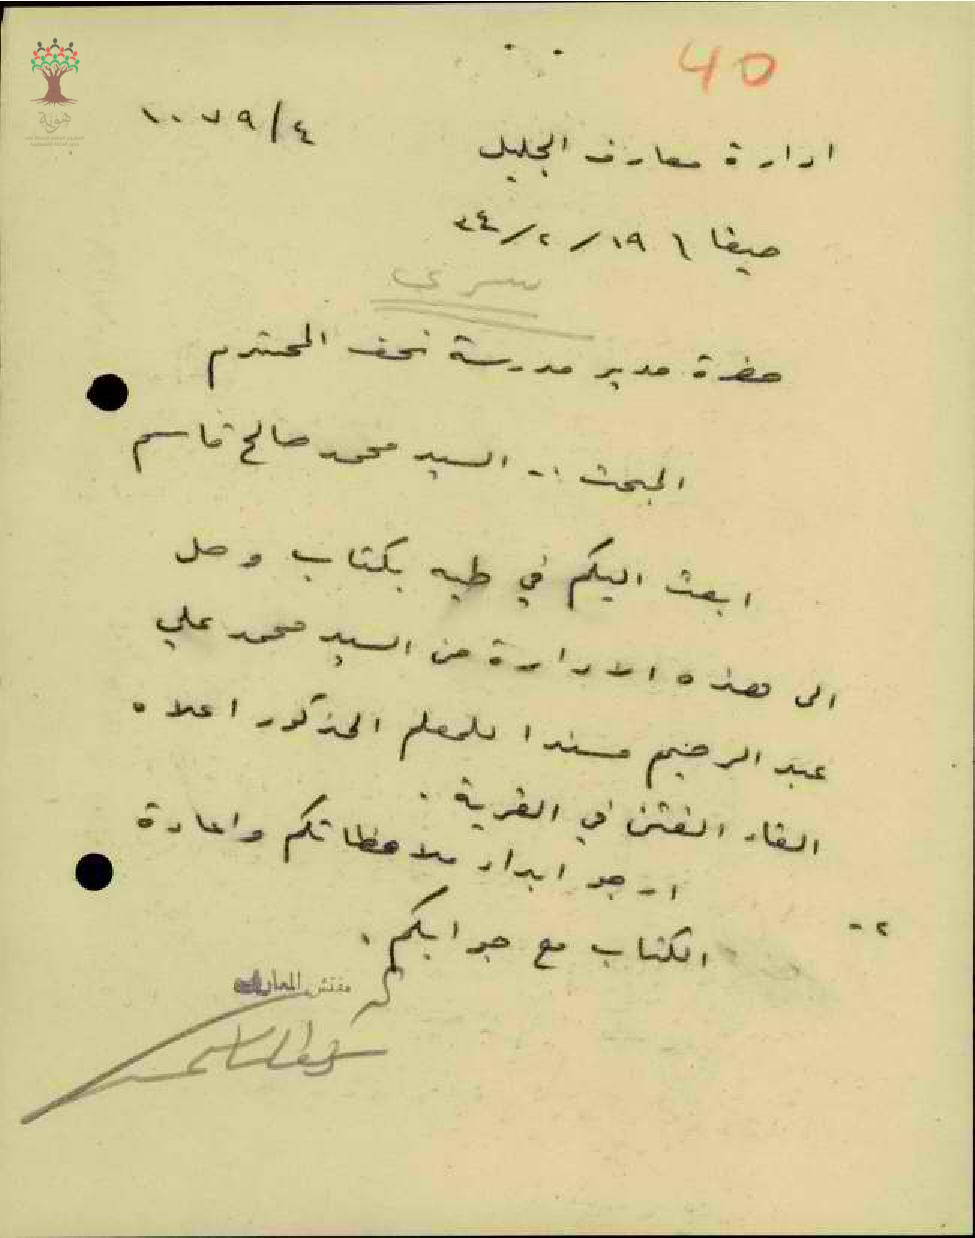 40
ادارة معارف الجليل
١٠٠٧٩/٤
٣٤/٢/١٩
سري
حضرة مدير مدرسة نحف المحترم
المبحث :- السيد محمد صالح قاسم
ابعث اليكم في طيه بكتاب وصل
الى هذه الادارة من السيد محمد علي
عبد الرحيم مسندا للمعلم المذكور اعلاه
القاء الفتن في القرية .
٢- ارجو ابداء ملاحظاتكم واعادة
الكتاب مع جوابكم .
مفتش المعارف
هوية